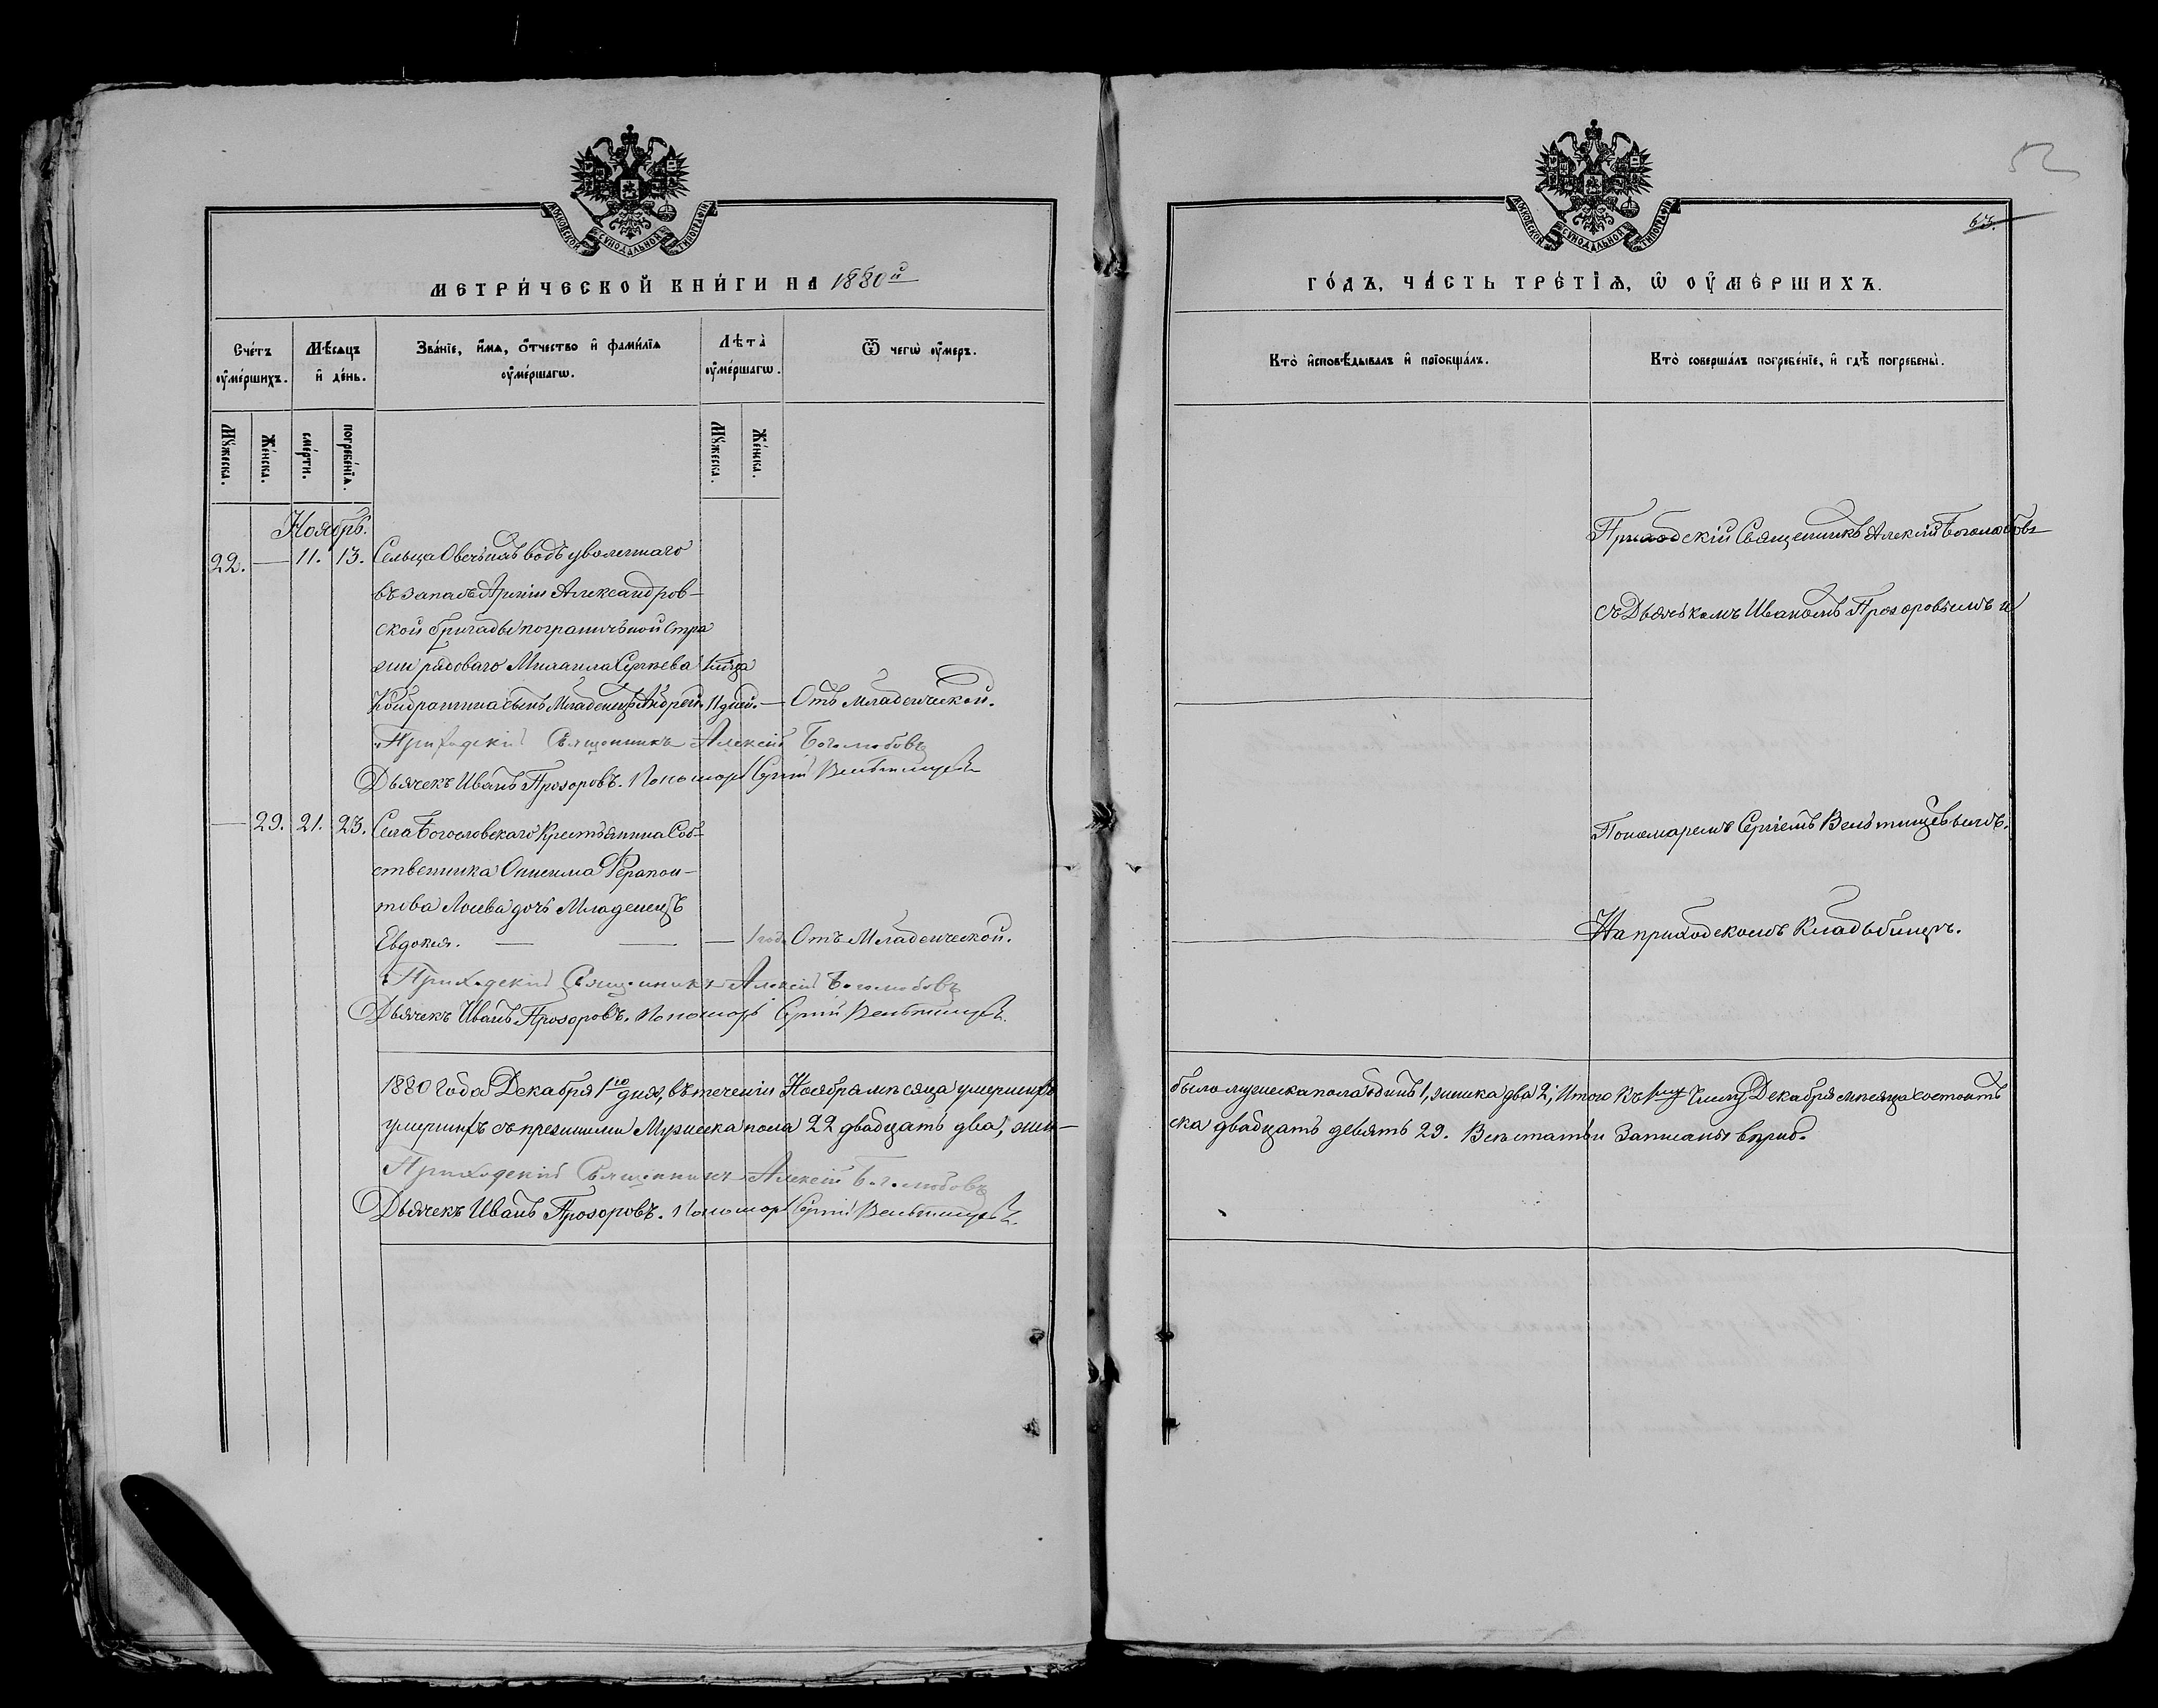 МОСКОВСКОЙ СѴНОДАЛЬНОЙ ТИПОГРАФІИ
МЕТРИ́ЧЕСКОЙ КНИ́ГИ НА 1880й
Сче́тъ оу҆ме́ршихъ.
Мѣ́сяцъ и҆ де́нь.
Зва́ніе, и҆́мѧ, ѻ҆́тчество и҆ фами́лїѧ оу҆ме́ршагѡ.
Лѣ́та оу҆ме́ршагѡ.
Ѿ чегѡ̀ оу҆́меръ.
Мꙋ́жеска.
Же́нска.
сме́рти.
погребе́нїѧ.
Мꙋ́жеска.
Же́нска.
Ноябрь.
22. — 11. 13. Сельца Овечьихъ водъ уволеннаго
въ запасъ Арміи Александров-
ской бригады пограничьной стра
жи рядоваго Михаила Сергѣева
Кондрашина сынъ Младенецъ Андрей. 11 дней. — Отъ Младенческой.
Приходскій Священникъ Алексій Боголюбовъ
Дьячекъ Иванъ Прозоровъ. Пономарь Сергій Вельтищевъ
— 29. 21. 23. Села Богословскаго Крестьянина Соб-
ственника Онисима Ферапон-
това Лосева дочь Младенецъ
Евдокия. — — — 1 года Отъ Младенческой.
Приходскій Священникъ Алексій Боголюбовъ
Дьячекъ Иванъ Прозоровъ. Пономарь Сергій Вельтищевъ.
1880 года Декабря 1го дня, въ теченіи Ноября мѣсяца умершихъ
умершихъ съ прежними Мужеска пола 22 двадцать два, жен-
Приходскій Священникъ Алексій Боголюбовъ
Дьячекъ Иванъ Прозоровъ. Пономарь Сергій Вельтищевъ.
52
63.
МОСКОВСКОЙ СѴНОДАЛЬНОЙ ТИПОГРАФІИ
ГО́ДЪ, ЧА́СТЬ ТРЕ́ТІѦ, Ѡ҆ ОУ҆МЕ́РШИХЪ.
Кто̀ и҆сповѣ́дывалъ и҆ прїѻбща́лъ.
Кто̀ соверша́лъ погребе́нїе, и҆ гдѣ̀ погребены̀.
Приходскій Священникъ Алексій Боголюбовъ
съ Дьячькомъ Иваномъ Прозоровымъ и
Пономаремъ Сергіемъ Вельтищевымъ.
На приходскомъ Кладьбищѣ.
было мужеска пола одинъ 1, женска два 2, Итого Къ 1му Числу Декабря мѣсяца состоитъ
ска двадцать девять 29. Всѣ статьи Записаны вѣрно.